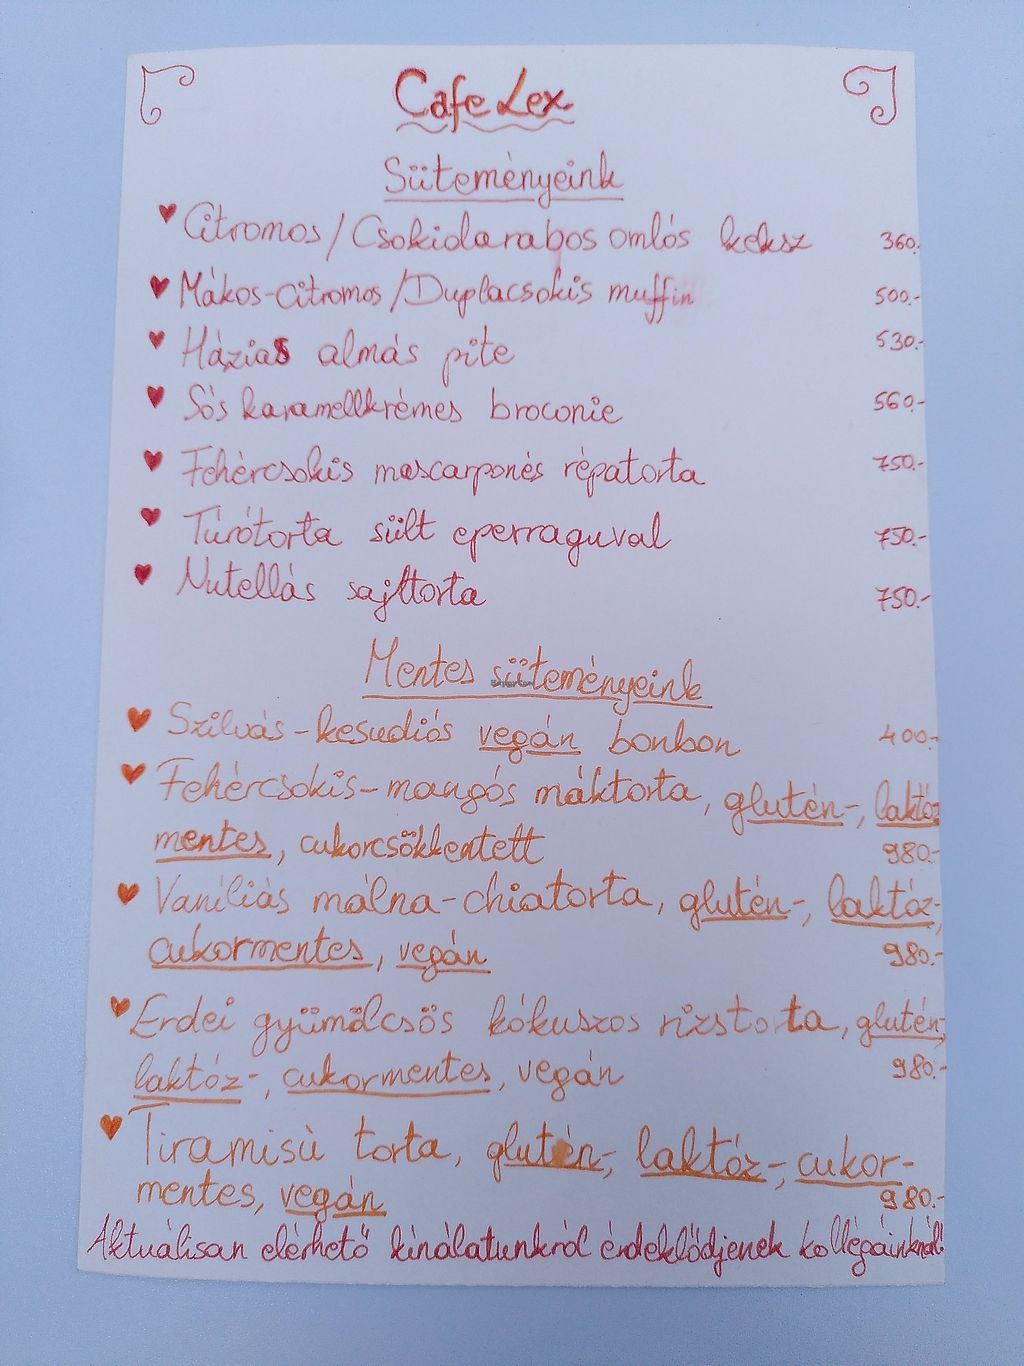 Cafe Lex
Süteményeink
Citromos/Csokidarabos omlós keksz 360.
Mákos-citromos/Duplacsokis muffin 500.-
Házias almás pite 530.-
Sós karamellkrémes broconie 560.-
Fehércsokis mascarponés répatorta 750.-
Túrótorta sült eperraguval 750.-
Nutellás sajttorta 750.-
Mentes süteményeink
Szilvás-kesudiós vegán bonbon 400.-
Fehércsokis-mangós máktorta, glutén-, laktóz
mentes, cukorcsökkentett 980.-
Vaníliás málna-chiatorta, glutén-, laktóz-,
cukormentes, vegán 980.-
Erdei gyümölcsös kókuszos rizstorta, glutén,
laktóz-, cukormentes, vegán 980.-
Tiramisù torta, glutén-, laktóz-, cukor-
mentes, vegán 980.-
Aktuálisan elérhető kínálatunkról érdeklődjenek kollégáinknál!